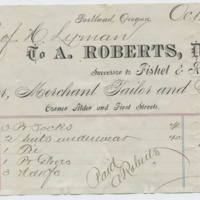 Portland, Oregon, Oct
of H Lyman
To A. ROBERTS, D
Successor to Fishel & R
er, Merchant Tailor and
Corner Alder and First Streets.
3 Pr Socks
2 Suits underwear
1 Tie
1 Pr Gloves
3 Hdkfs
Paid
A Roberts